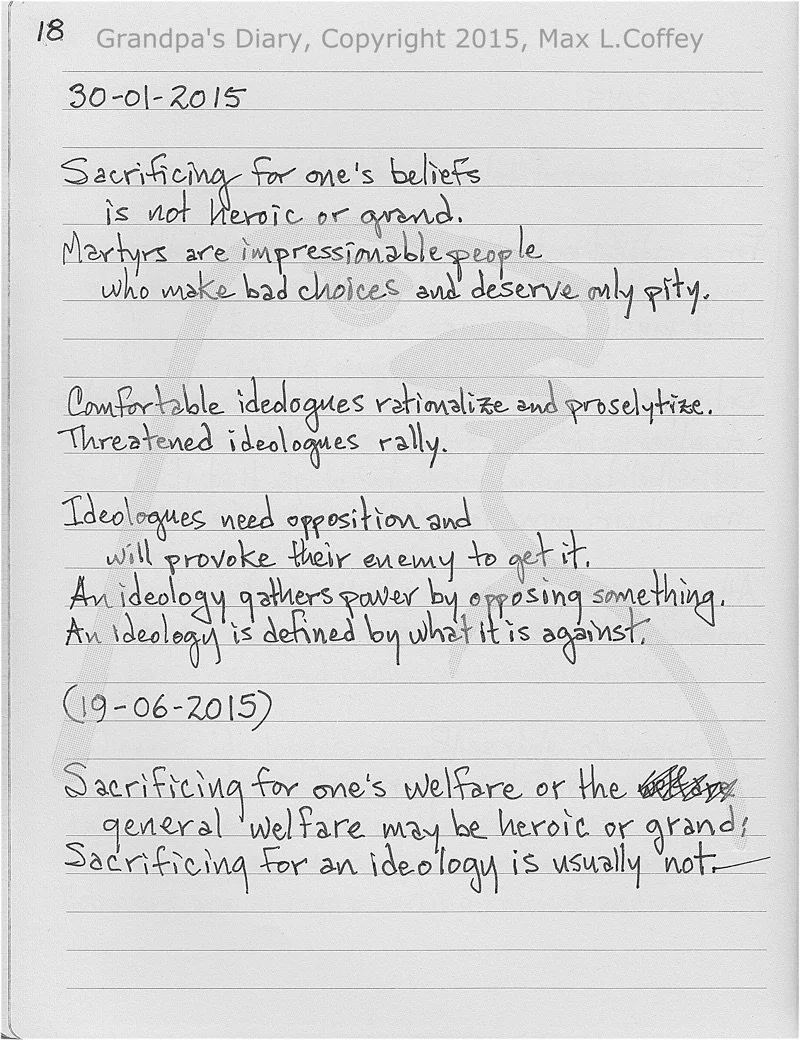 18
Grandpa's Diary, Copyright 2015, Max L.Coffey
30-01-2015
Sacrificing for one's beliefs
is not heroic or grand.
Martyrs are impressionable people
who make bad choices and deserve only pity.
Comfortable ideologues rationalize and proselytize.
Threatened ideologues rally.
Ideologues need opposition and
will provoke their enemy to get it.
An ideology gathers power by opposing something.
An ideology is defined by what it is against.
(19-06-2015)
Sacrificing for one's welfare or the
general welfare may be heroic or grand;
Sacrificing for an ideology is usually not.